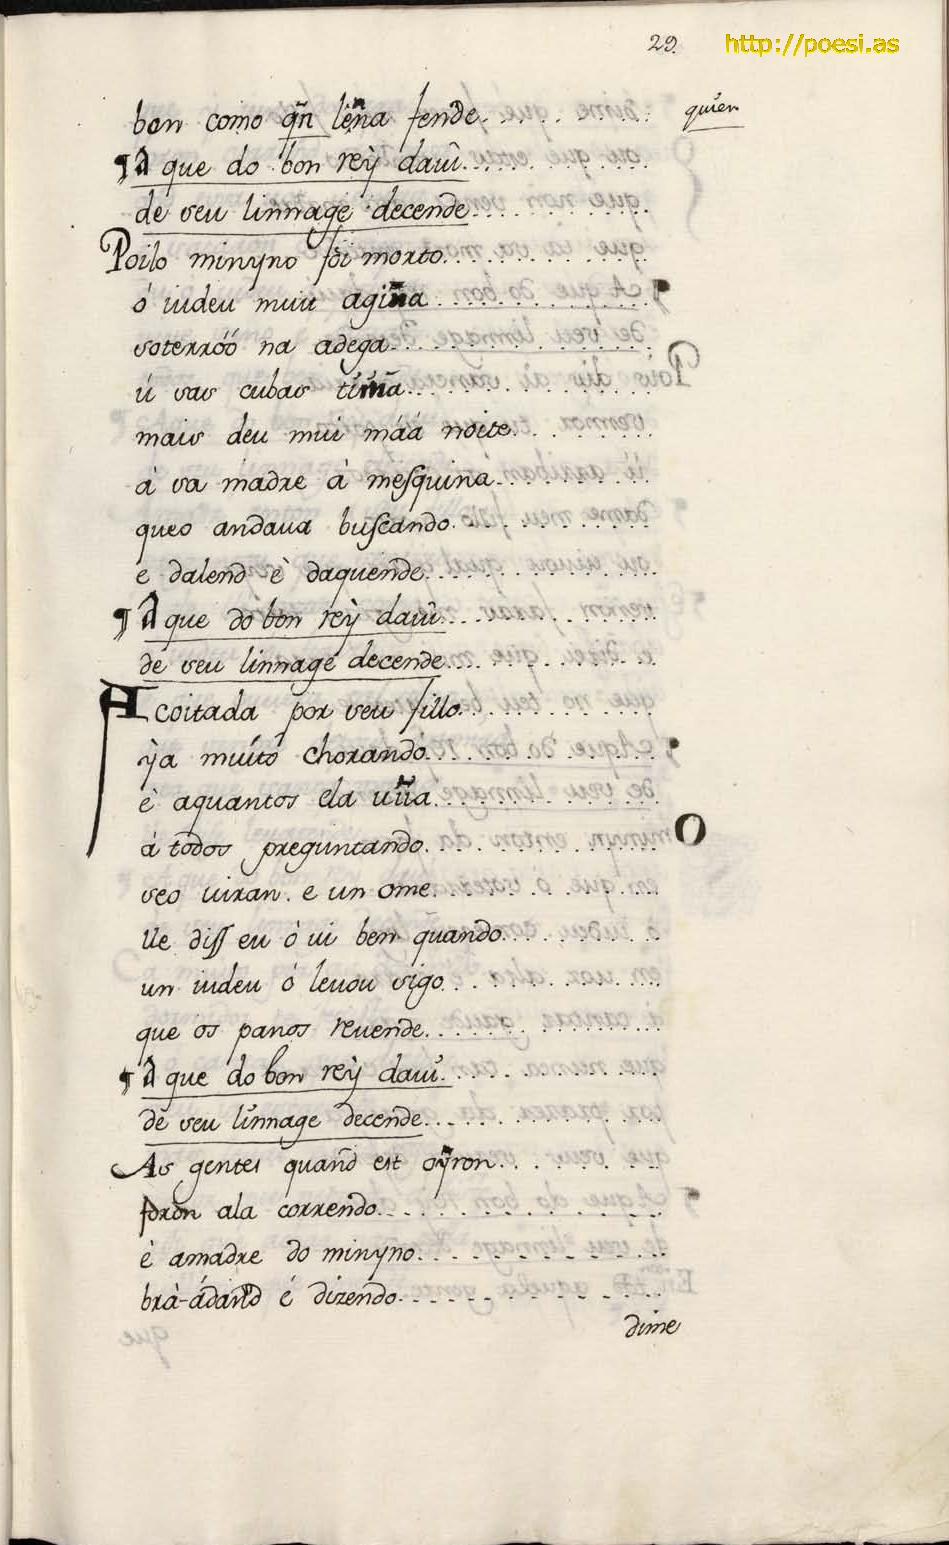 29.
http://poesi.as
ben como qñ leña fende
quien
¶A que do bon rey̆ dauĩ.
de seu linnage decende
Poilo minyno foi morto
ó iudeu muiı agiña
soterróó na adega
ú sas cubas tĩña
mais deu mui máá noite
á sa madre á mesquina
queo andaua buscando
e dalend è daquende
¶A que do bon reỳ dauĩ
de seu linnage decende
A coitada por seu fillo
ẏa muíto chorando
è aquantos ela uĩia
á todos preguntando
seo uiran. e un ome
lle diss eu ó ui ben quando
un iudeu ó leuou sigo
que os panos reuende
¶A que do bon reỳ dauĩ.
de seu lĩnnage decende
As gentes quand est oyron
foron ala correndo
è amadre do minyno
brà-ádand é dizendo
dime